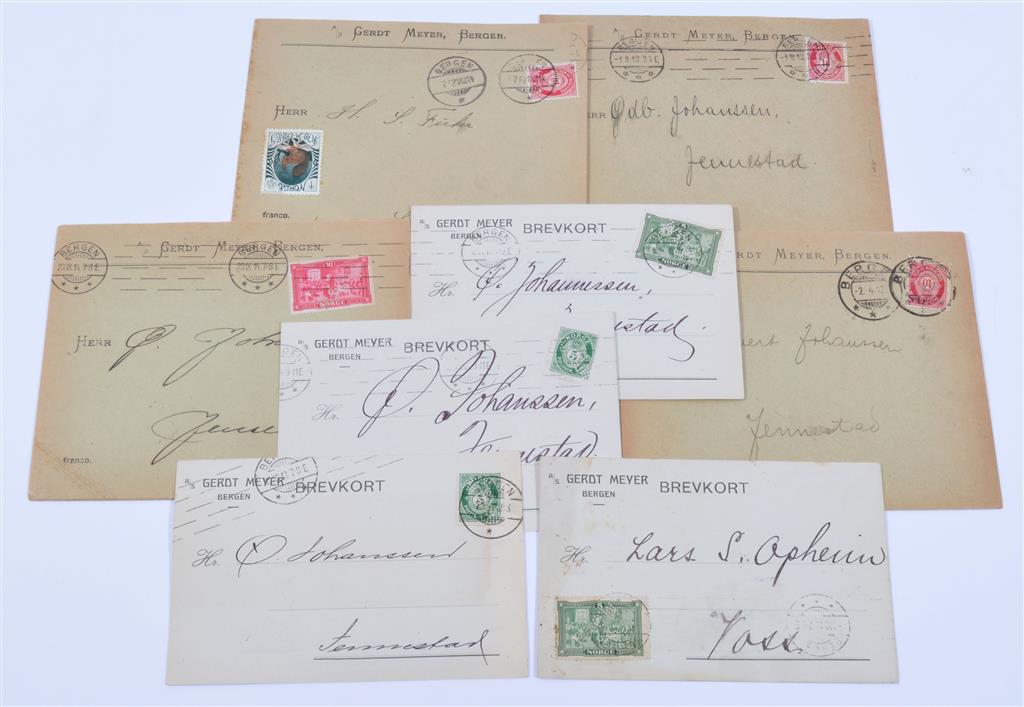 A/S GERDT MEYER, BERGEN.
BERGEN
HERR
franco.
NORGE
A/S GERDT MEYER, BERGEN.
BERGEN
-1.III.12.
HERR Ødb. Johanssen,
Jennestad.
A/S GERDT MEYER, BERGEN.
BERGEN
BERGEN
10
NORGE
HERR Ø. Joh
Jenne
franco.
A/S GERDT MEYER
BERGEN
BREVKORT
BERGEN
Hr. Ø. Johannessen,
nnestad.
MEYER, BERGEN.
BERG
BERG
-2.4.12
10
bert Johanssen
Jennestad
GERDT MEYER
BERGEN
BREVKORT
NORGE
5
Hr. Ø. Johanssen,
Jennestad
A/S GERDT MEYER
BERGEN
BREVKORT
BERGEN
Hr. Ø. Johanssen
Jennestad
A/S GERDT MEYER
BERGEN
BREVKORT
Hr. Lars S. Opheim
Voss.
NORGE